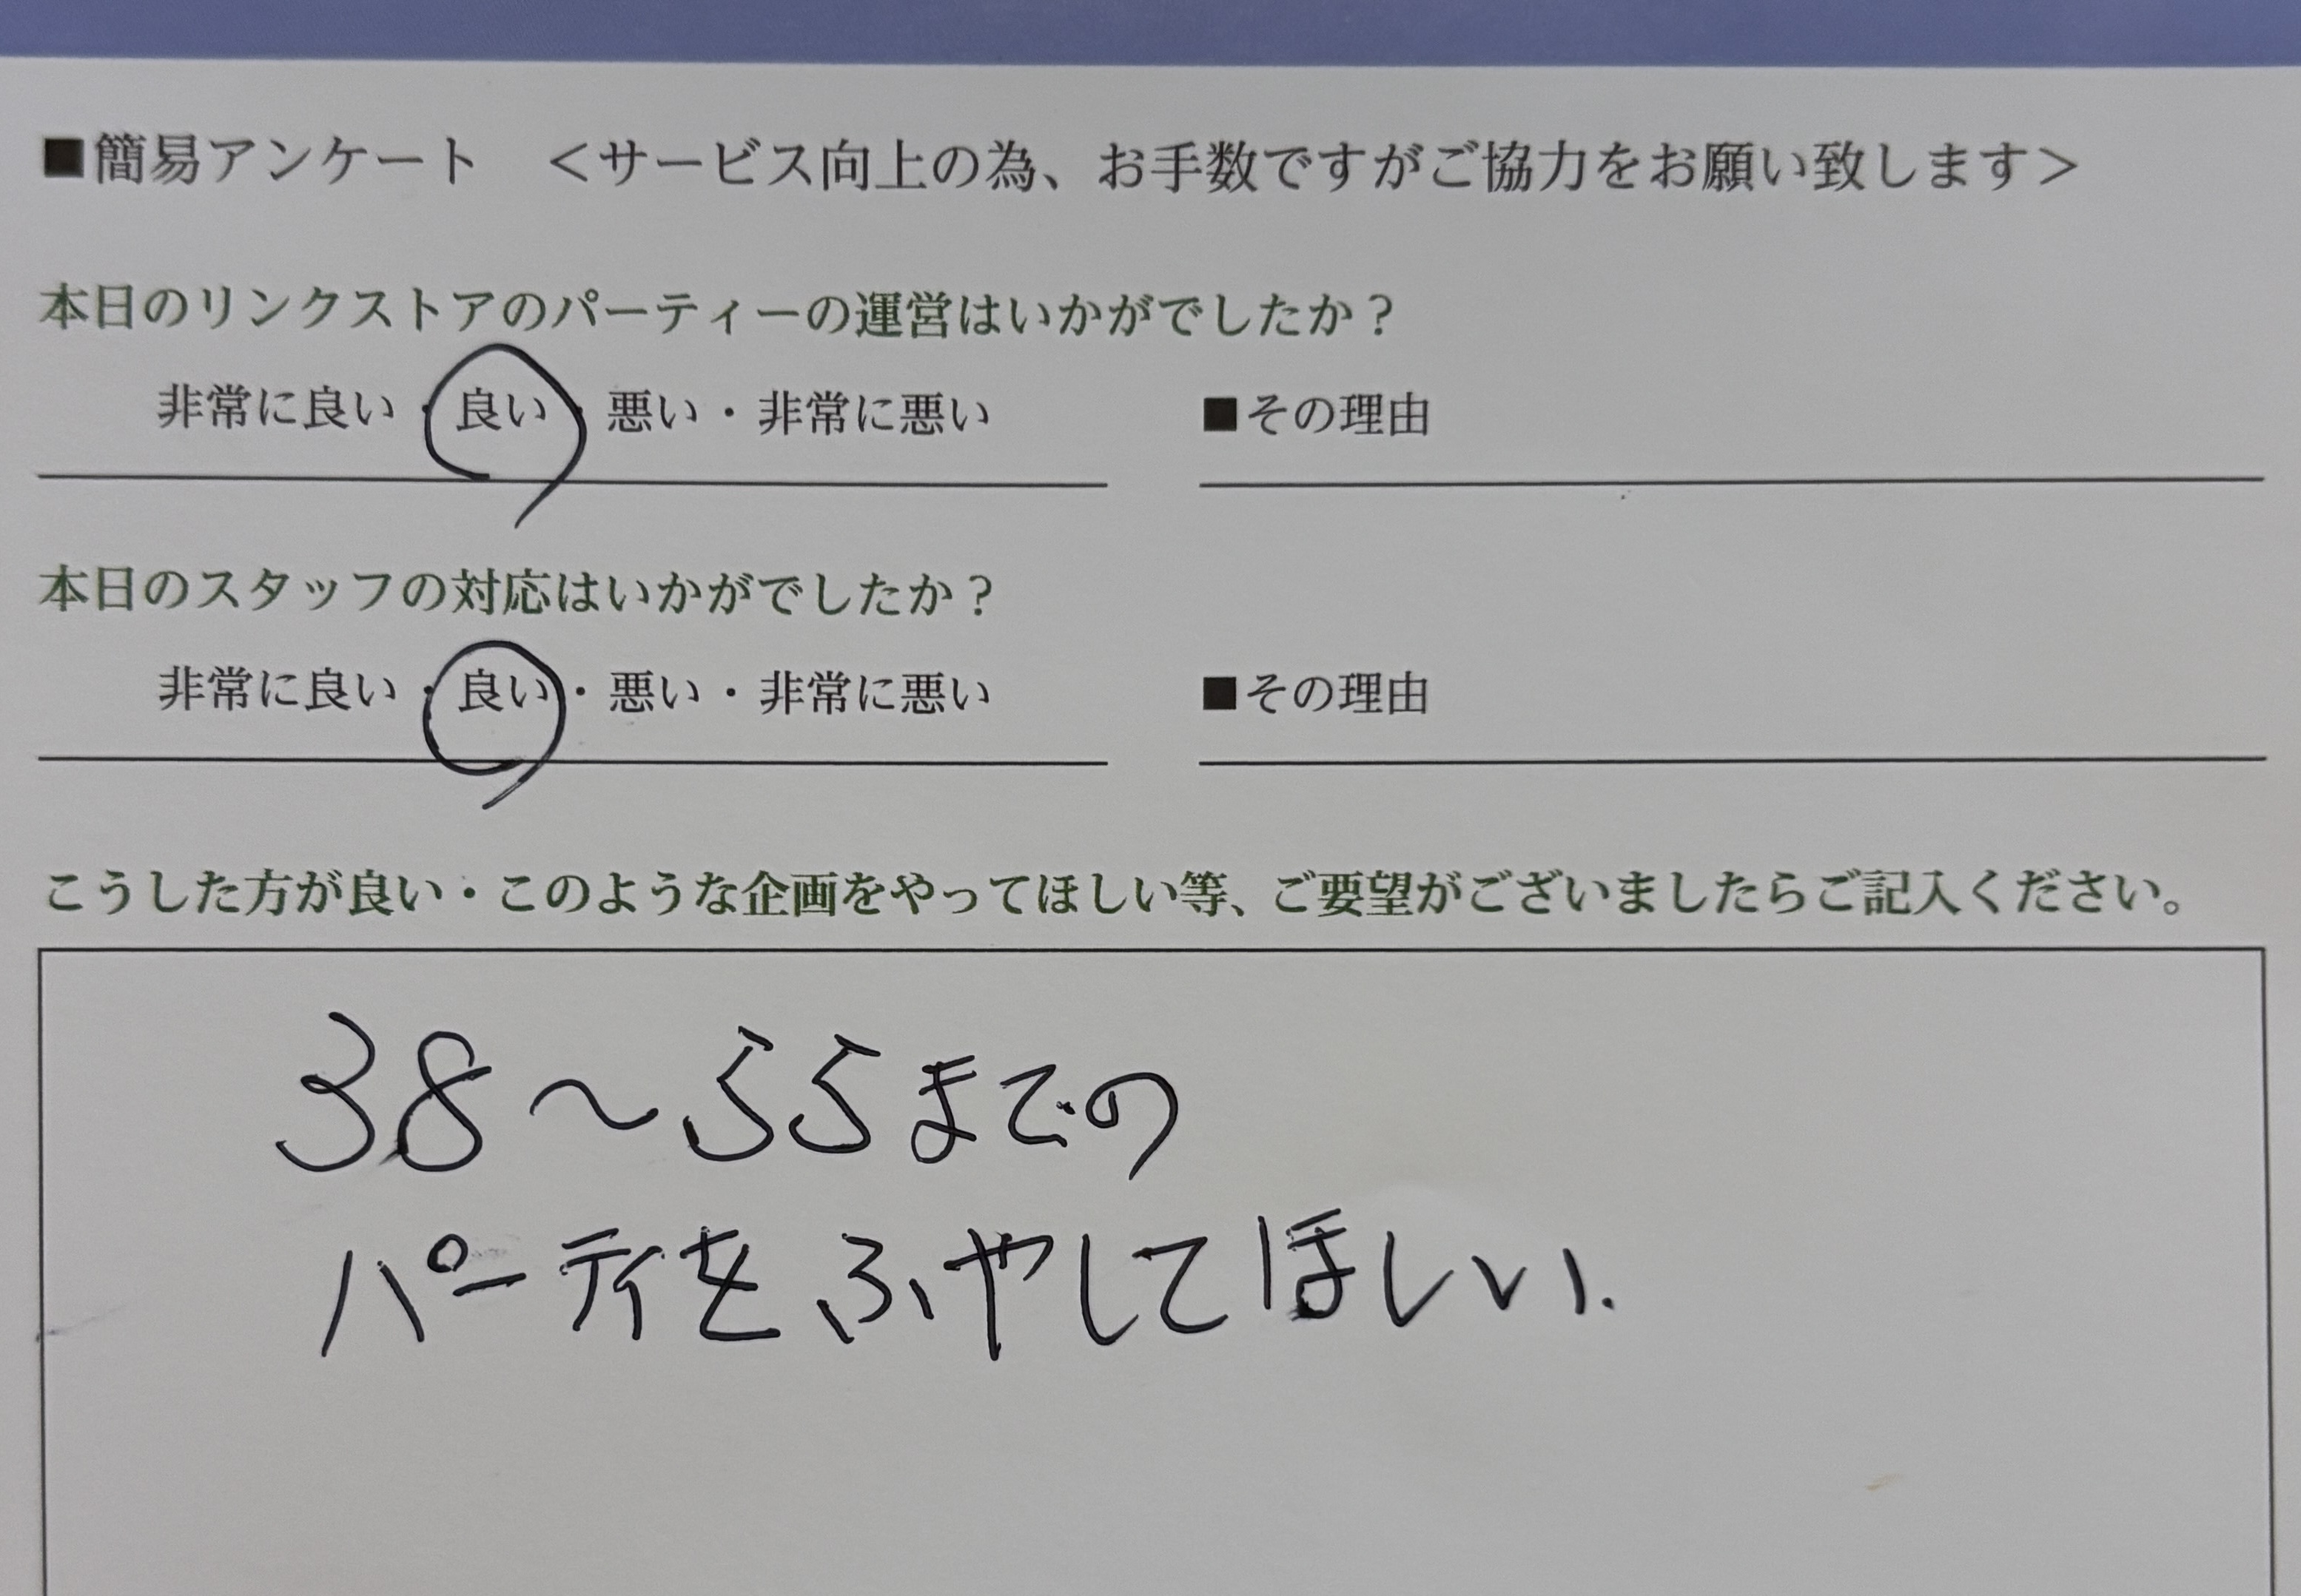 ■簡易アンケート　＜サービス向上の為、お手数ですがご協力をお願い致します＞
本日のリンクストアのパーティーの運営はいかがでしたか？
非常に良い・良い・悪い・非常に悪い　■その理由
本日のスタッフの対応はいかがでしたか？
非常に良い・良い・悪い・非常に悪い　■その理由
こうした方が良い・このような企画をやってほしい等、ご要望がございましたらご記入ください。
38～55までの
パーティをふやしてほしい.